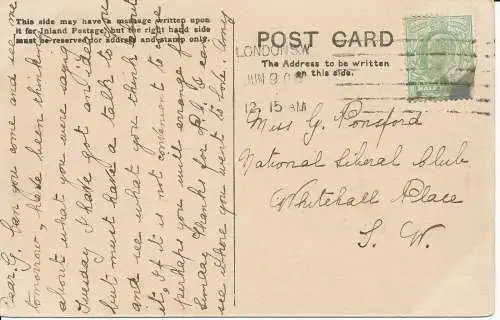 This side may have a message written upon
it for Inland Postage, but the right hand side
must be reserved for address and stamp only.
POST CARD
The Address to be written
on this side.
LONDON S.W
JUN 9 09
12. 15 AM
HALF
Dear G. Can you come and see me
tomorrow, have been thinking
about what you were saying
Tuesday I have got an idea
but must have a talk to you
and see what you think about
it, If it is not convenient to come
perhaps you will arrange for
Sunday Thanks for P.C. &
see where you went to
Miss G. Ponsford
National Liberal Club
Whitehall Place
S. W.